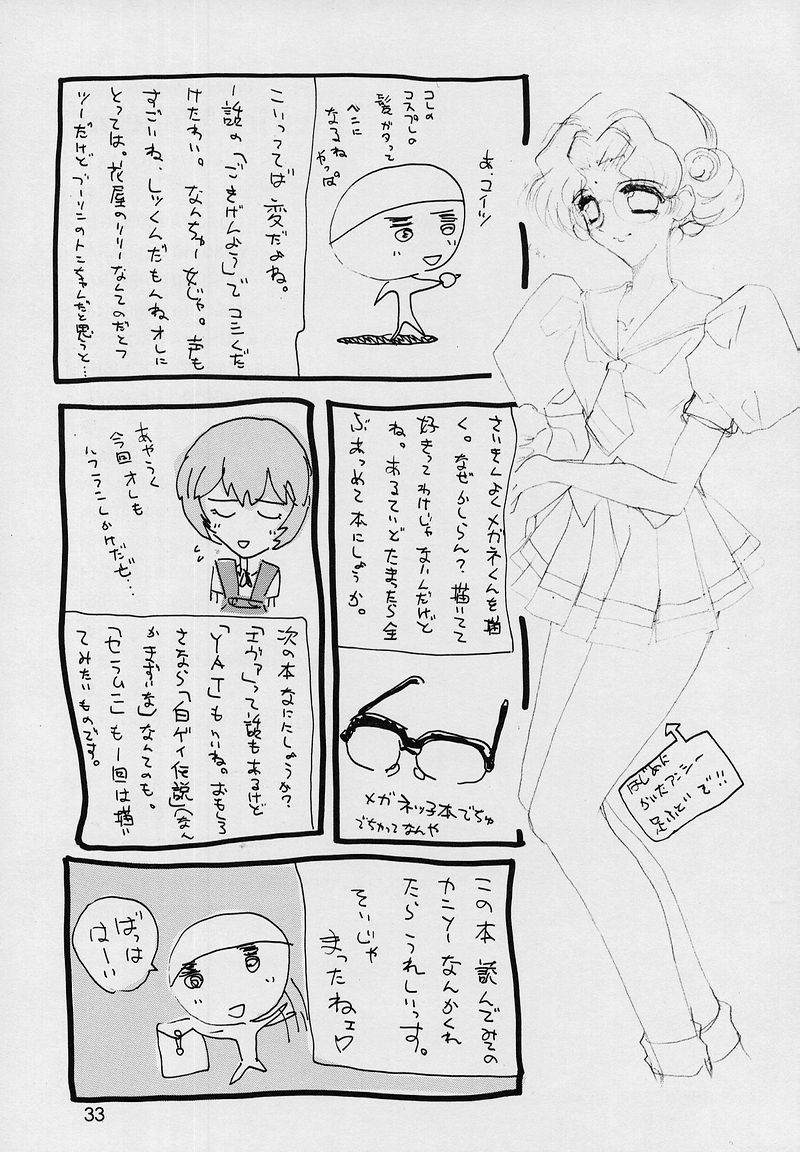 あ、コイツ
コレの
コスプレの
髪がタって
ベニに
なるね
やっぱ
こいつってば変だよね。
一話の「ごきげんよう」でコミくだ
けたわい。なんちゅー女じゃ。声も
すごいね、しっくんだもんねオレに
とっては。花屋のリリーなんてのだとっ
ツーだけどブーリンのトンちゃんだと思うと…
さいきんよくメガネくんを描
く。なぜかしらん?描いてて
好きってわけじゃないんだけど
ね。あるていどたまったら全
ぶあつめて本にしようか。
メガネッ子本でちゅ
でちかってなんや
あやうく
今回オレも
ハラミしかけだぜ…
次の本なににしょうか?
「エヴァ」って話もあるけど
「YAT」もいいね。おもしろ
さなら「白ゲイ伝説」(なん
かまずいな)なんてのも。
「セラムニ」も一回は描い
てみたいものです。
はじめに
かいたアンシー
足ふとい で!!
この本 読んでみての
カンソーなんかくれ
たら うれしいっす。
そいじゃ
まったねェ
ばっは
はーい
33